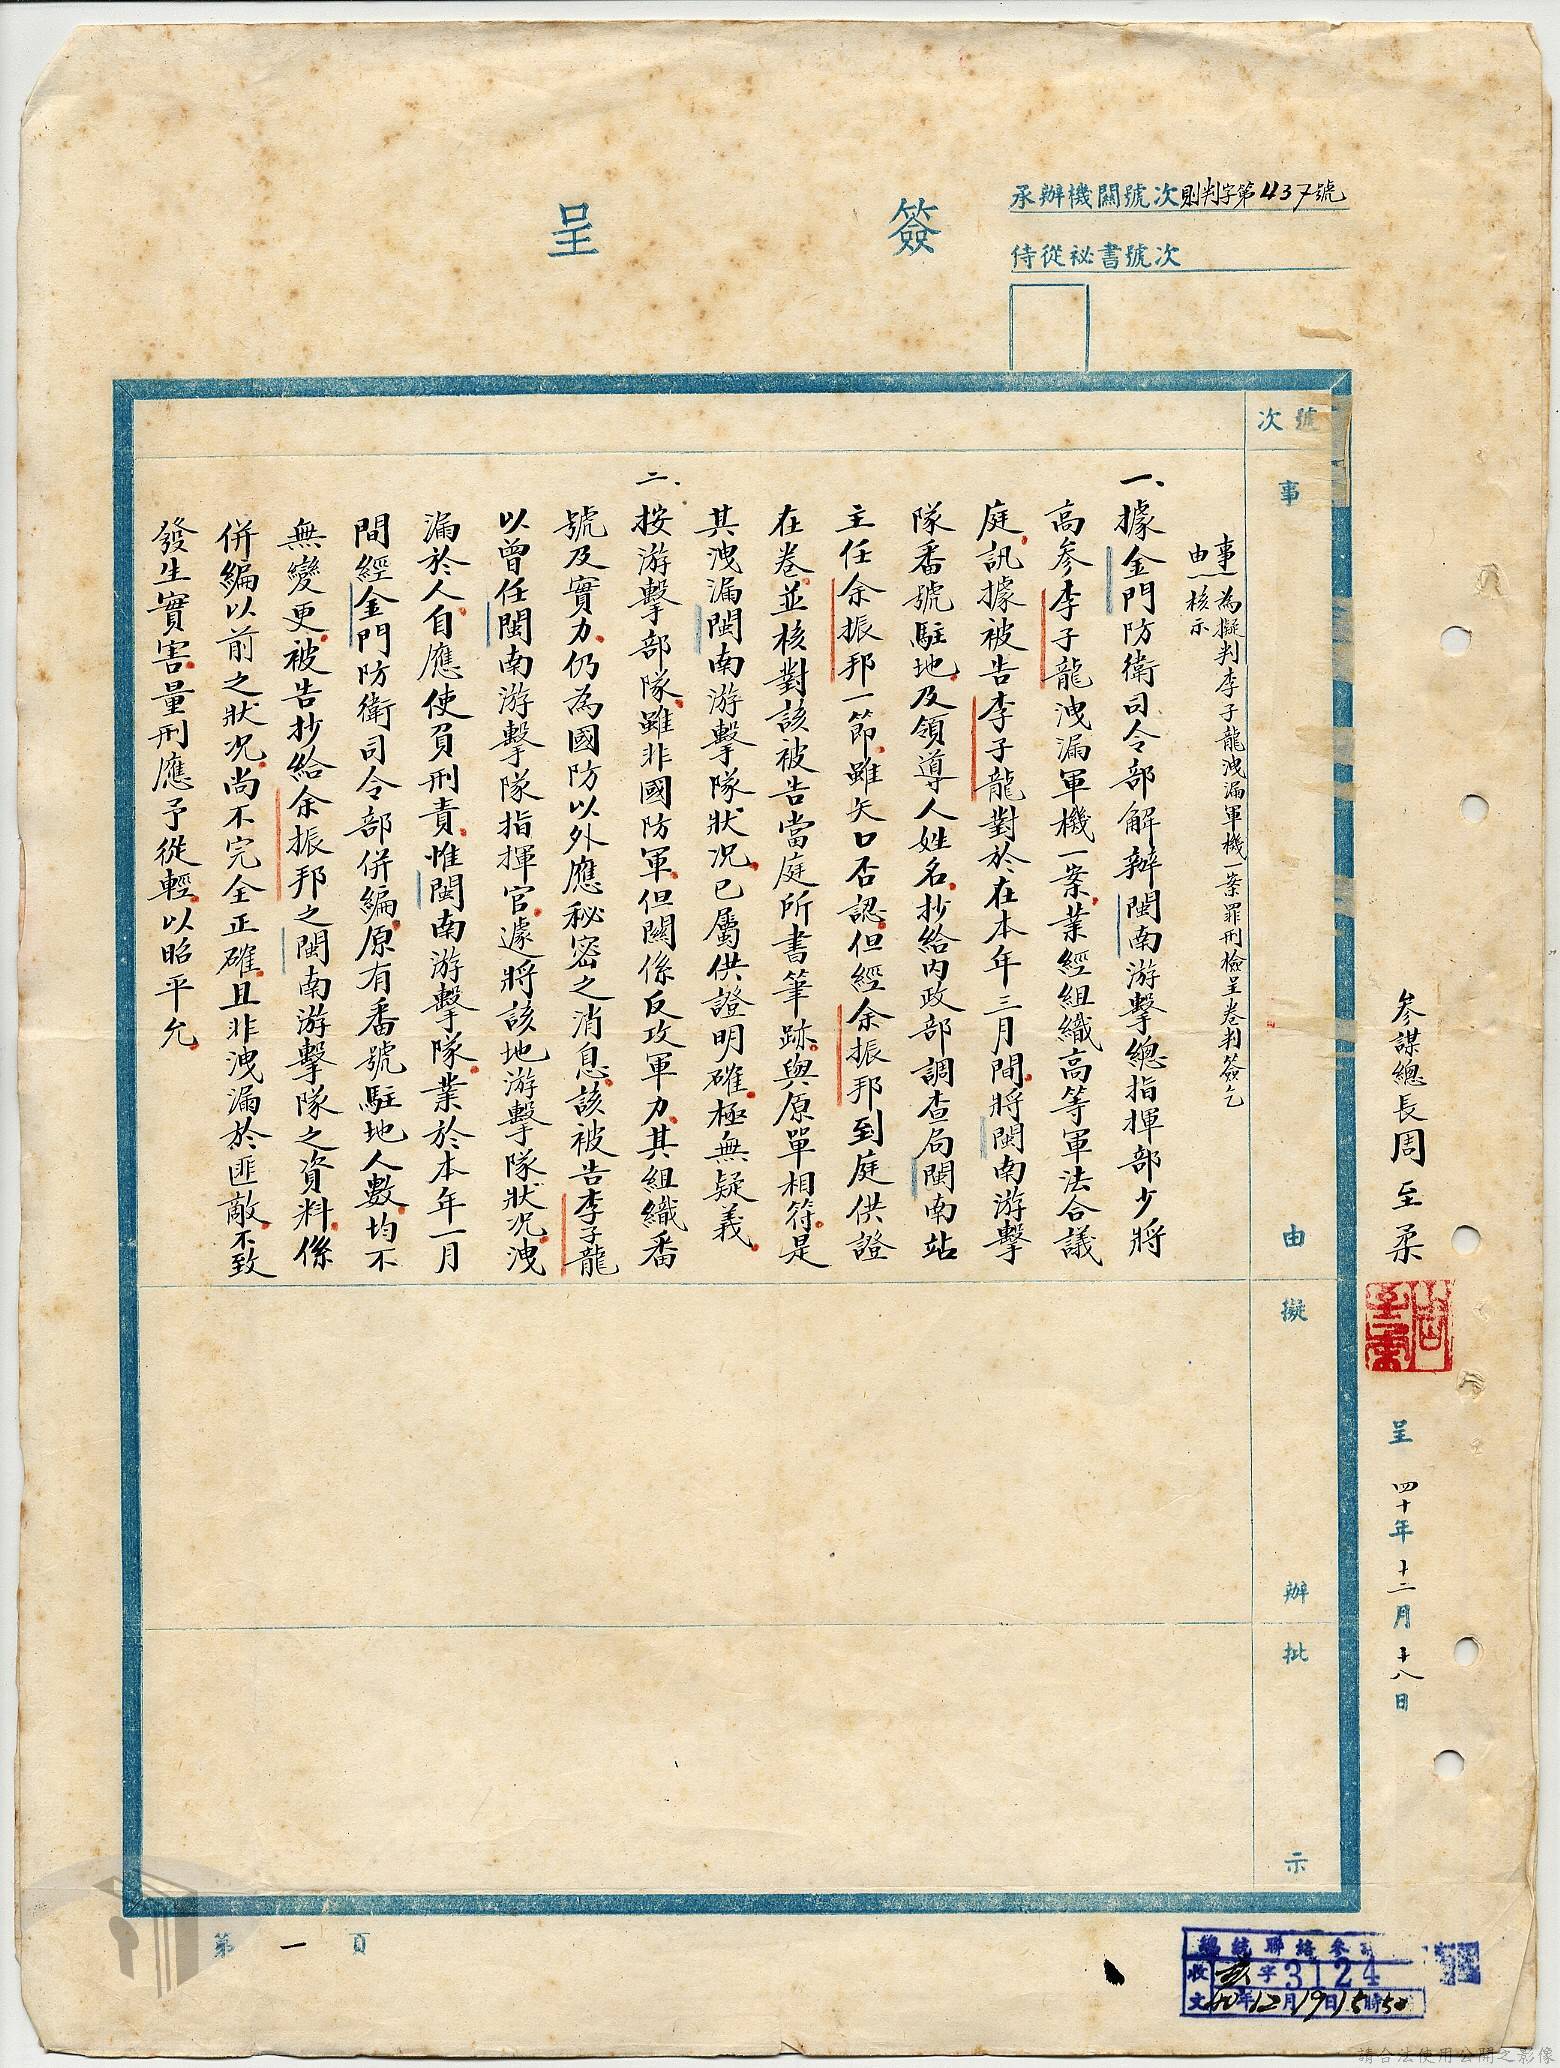 簽呈
承辦機關號次則判字第437號
侍從祕書號次
參謀總長周至柔
周至柔
呈 四十年十二月十八日
號次
事由
擬辦
批示
事由 為擬判李子龍洩漏軍機一案罪刑檢呈卷判簽乞
核示
一、據金門防衛司令部解辦閩南游擊總指揮部少將
高參李子龍洩漏軍機一案，業經組織高等軍法合議
庭，訊據被告李子龍對於在本年三月間，將閩南游擊
隊番號駐地，及領導人姓名，抄給內政部調查局閩南站
主任余振邦一節，雖矢口否認，但經余振邦到庭供證
在卷，並核對該被告當庭所書筆跡，與原單相符，是
其洩漏閩南游擊隊狀况，已屬供證明確，極無疑義。
二、按游擊部隊，雖非國防軍，但關係反攻軍力，其組織番
號及實力，仍為國防以外應秘密之消息，該被告李子龍
以曾任閩南游擊隊指揮官，遽將該地游擊隊狀况，洩
漏於人，自應使負刑責，惟閩南游擊隊，業於本年一月
間經金門防衛司令部併編，原有番號駐地人數，均不
無變更，被告抄給余振邦之閩南游擊隊之資料，係
併編以前之狀况，尚不完全正確，且非洩漏於匪敵，不致
發生實害，量刑應予從輕，以昭平允。
第一頁
總統聯絡參
收文 字3124
40年12月19日15時50
請合法使用公開之影像